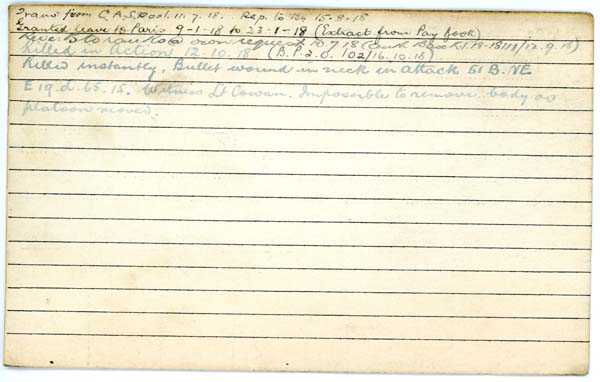 Trans from C.A.S. Pool. 11.7.18. Rep. to 124 15-8-18
Granted leave to Paris 9-1-18 to 23-1-18 (Extract from Pay Book)
Reverts to ranks @ own request 10.7.18 12.9.18)
Killed in Action 12-10-18 (B.P.2.0.102/16.10.18)
Killed instantly. Bullet wound in neck in attack 51 B. NE
E 19.d.65.15. Witness Lt Cowan. Impossible to remove body as
platoon moved.